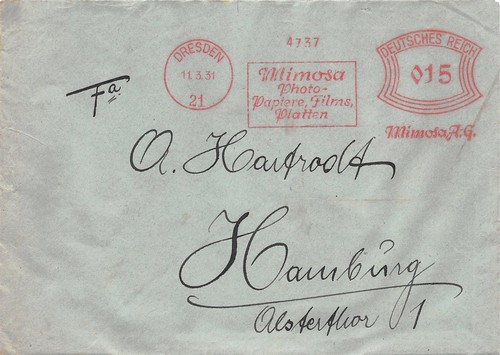 DRESDEN
11.3.31
21
4737
Mimosa
Photo-
Papiere, Films,
Platten
DEUTSCHES REICH
015
Mimosa A.G.
Fa.
A. Hartrodt
Hamburg
Alsterthor 1